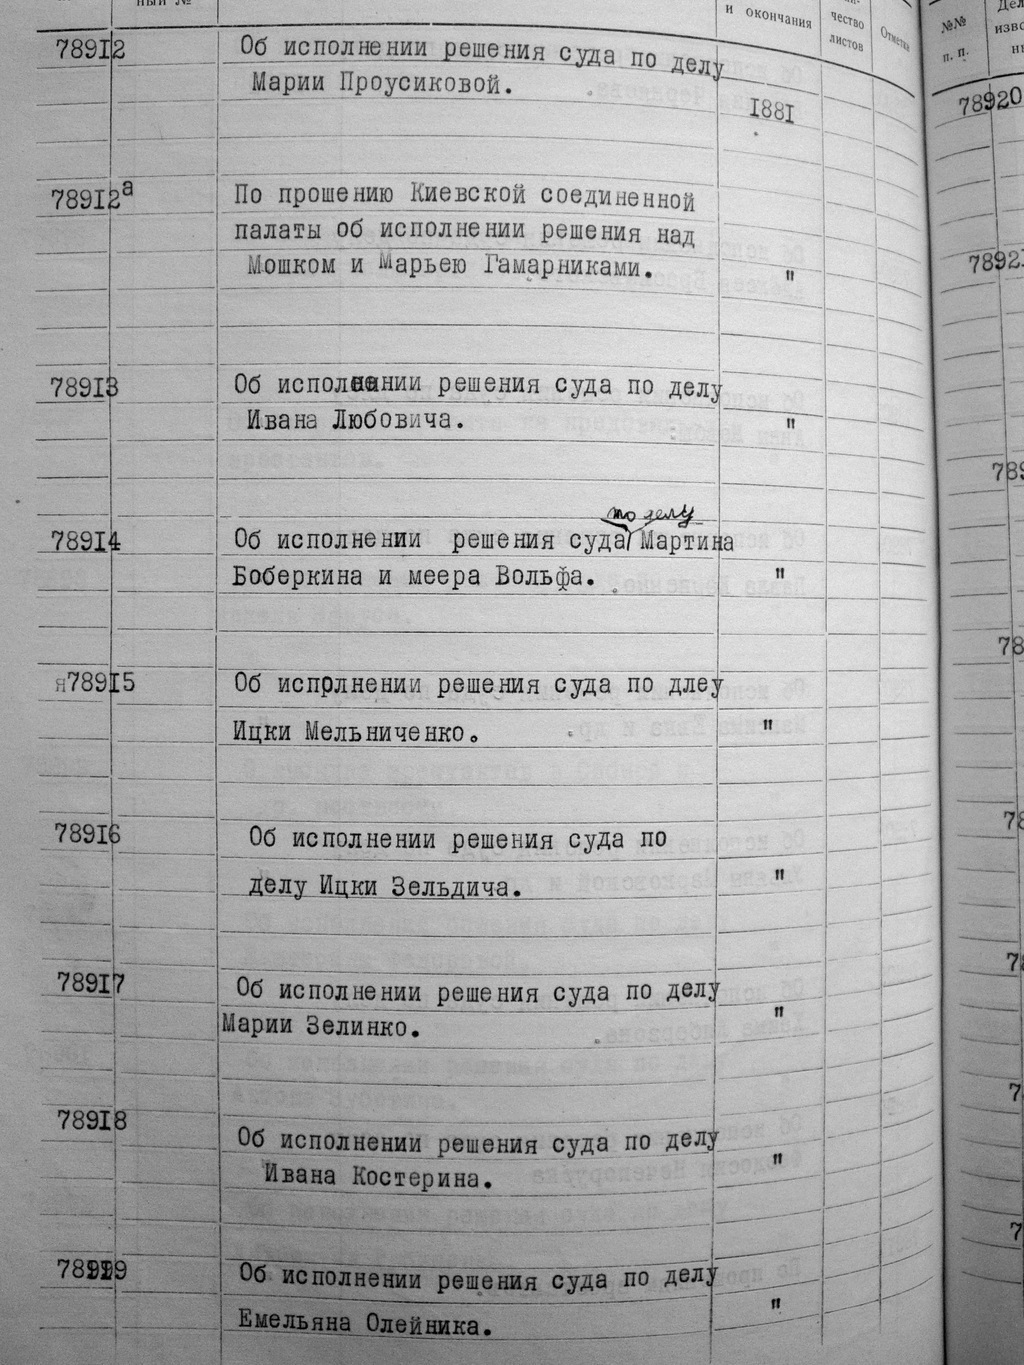 ный №
и окончания
чество
листов
Отметки
№№
п. п.
78912
Об исполнении решения суда по делу
Марии Проусиковой.
1881
78912а
По прошению Киевской соединенной
палаты об исполнении решения над
Мошком и Марьею Гамарниками.
"
78913
Об исполнении решения суда по делу
Ивана Любовича.
"
по делу
78914
Об исполнении решения суда Мартина
Боберкина и меера Вольфа.
"
я78915
Об исполнении решения суда по длеу
Ицки Мельниченко.
"
78916
Об исполнении решения суда по
делу Ицки Зельдича.
"
78917
Об исполнении решения суда по делу
Марии Зелинко.
"
78918
Об исполнении решения суда по делу
Ивана Костерина.
"
78919
Об исполнении решения суда по делу
Емельяна Олейника.
"
78920